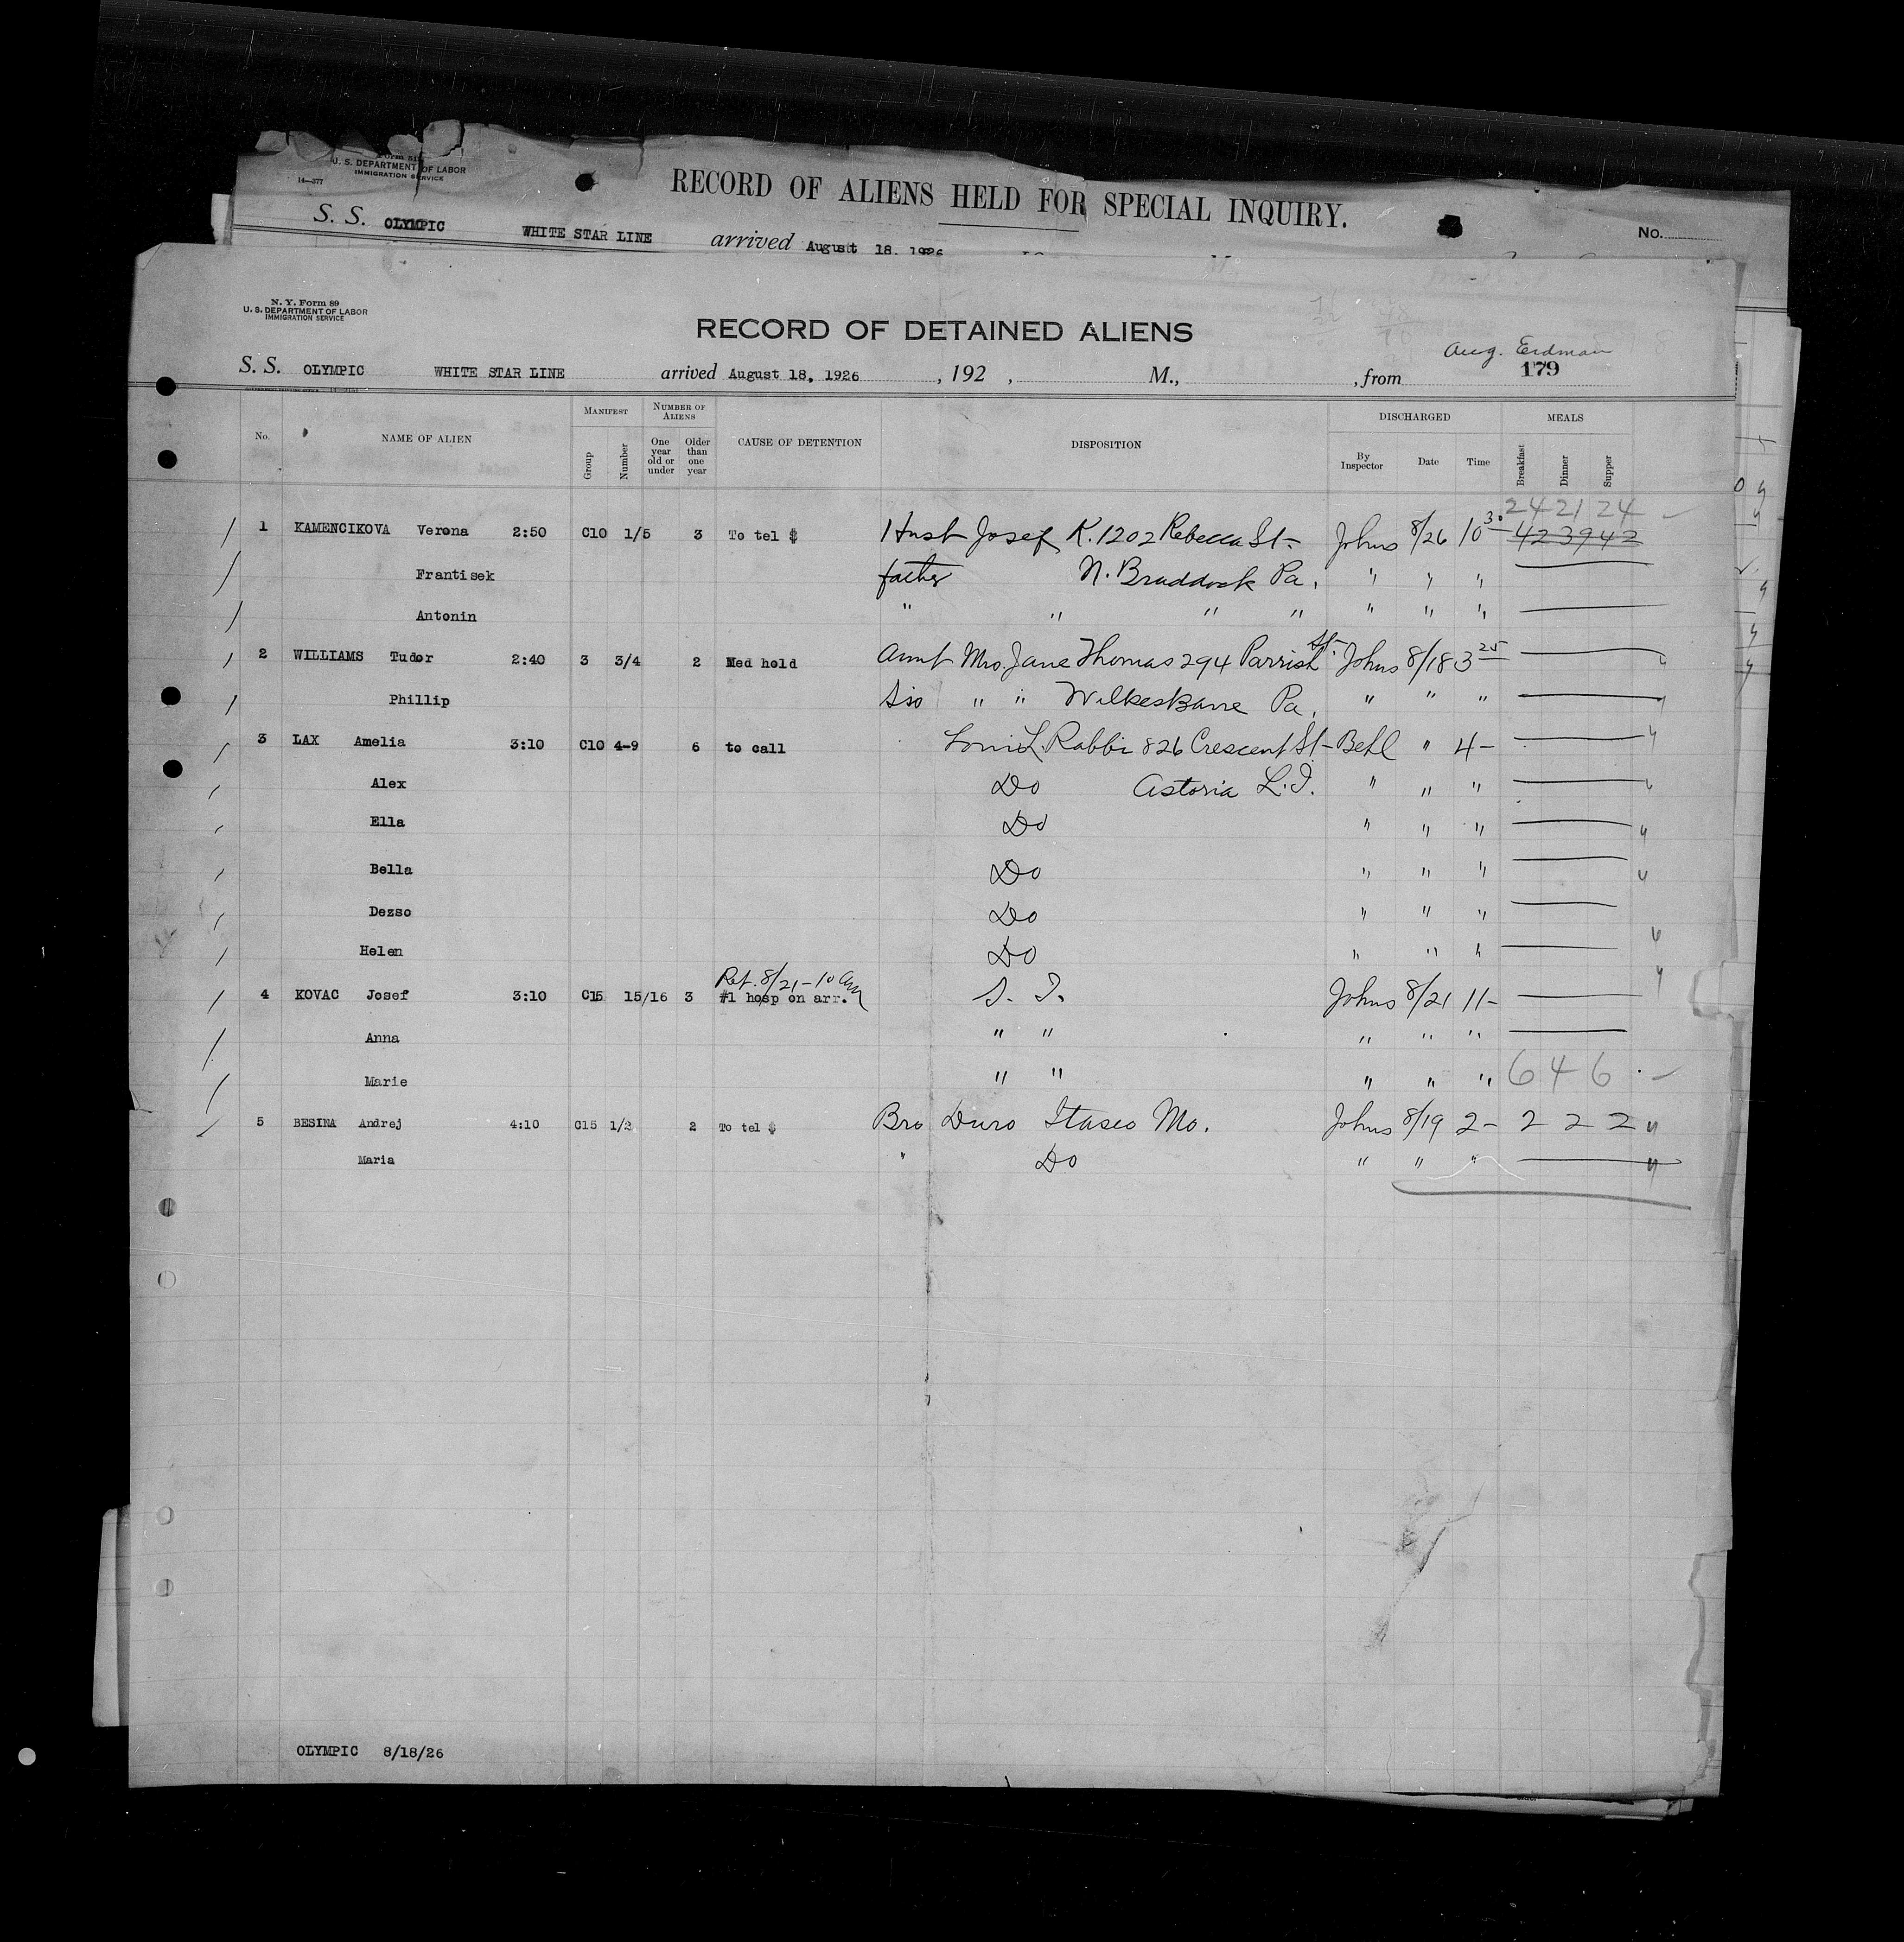 U. S. DEPARTMENT OF LABOR
IMMIGRATION SERVICE
14—377
RECORD OF ALIENS HELD FOR SPECIAL INQUIRY.
S. S. OLYMPIC WHITE STAR LINE arrived August 18, 1926 No.
N. Y. Form 89
U. S. DEPARTMENT OF LABOR
IMMIGRATION SERVICE
RECORD OF DETAINED ALIENS
Aug. Erdman
S. S. OLYMPIC WHITE STAR LINE arrived August 18, 1926, 192 , M., , from 179
No. NAME OF ALIEN MANIFEST Group Number NUMBER OF ALIENS One year old or under Older than one year CAUSE OF DETENTION DISPOSITION DISCHARGED By Inspector Date Time MEALS Breakfast Dinner Supper
24 21 24
1 KAMENCIKOVA Verona 2:50 C10 1/5 3 To tel $ Husb Josef K. 1202 Rebecca St- Johns 8/26 10 30 42 39 42
Frantisek father N. Braddock Pa. " " "
Antonin " " " " " " "
2 WILLIAMS Tudor 2:40 3 3/4 2 Med hold Aunt Mrs. Jane Thomas 294 Parrish St. Johns 8/18 3 25
Phillip Sis " " WilkesBarre Pa. " " "
3 LAX Amelia 3:10 C10 4-9 6 to call Louis L. Rabbi 826 Crescent St- Behl " 4-
Alex Do Astoria L.I. " " "
Ella Do " " "
Bella Do " " "
Dezso Do " " "
Helen Do " " "
Ret. 8/21-10 am
4 KOVAC Josef 3:10 C15 15/16 3 #1 hosp on arr. S. I. Johns 8/21 11-
Anna " " " " "
Marie " " " " " 6 4 6
5 BESINA Andrej 4:10 C15 1/2 2 To tel $ Bro Duro Itasco Mo. Johns 8/19 2- 2 2 2
Maria " Do " " "
OLYMPIC 8/18/26